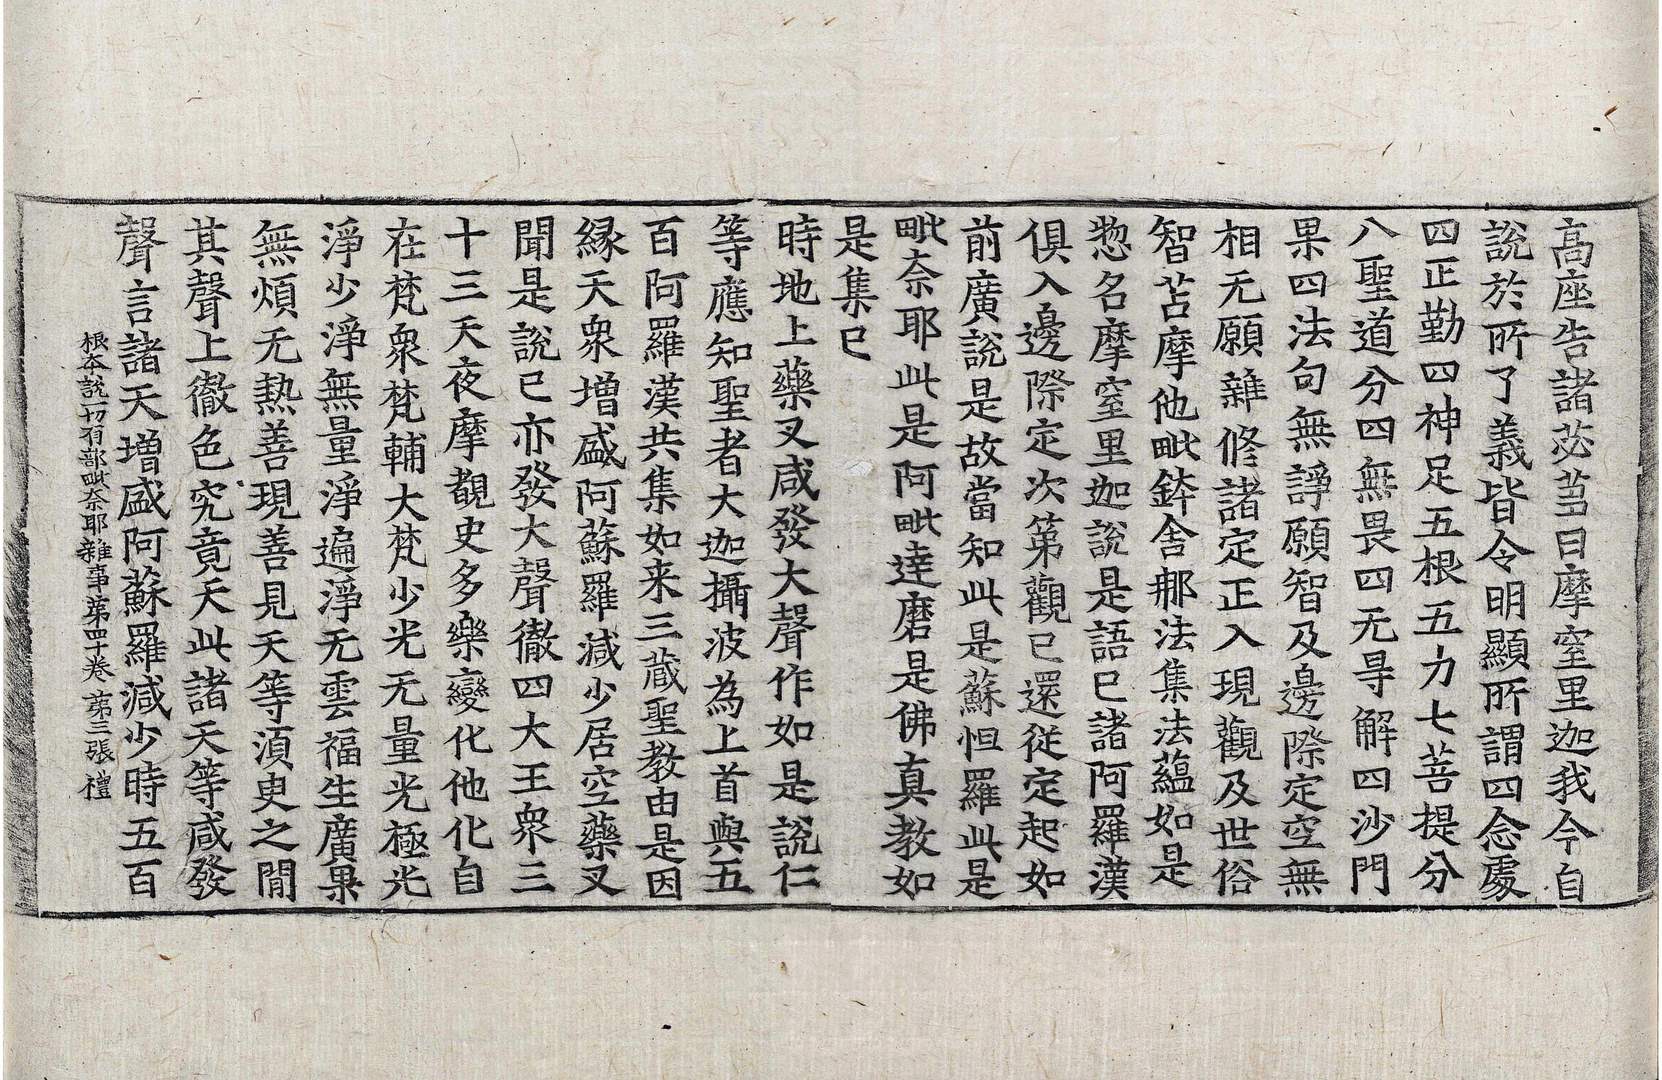 高座告諸苾芻曰摩窒里迦我今自
說於所了義皆令明顯所謂四念處
四正勤四神足五根五力七菩提分
八聖道分四無畏四无㝵解四沙門
果四法句無諍願智及邊際定空無
相无願雜修諸定正入現觀及世俗
智苫摩他毗鉢舍那法集法蘊如是
惣名摩窒里迦說是語已諸阿羅漢
俱入邊際定次第觀已還從定起如
前廣說是故當知此是蘇怛羅此是
毗奈耶此是阿毗達磨是佛真教如
是集已
時地上藥叉咸發大聲作如是說仁
等應知聖者大迦攝波為上首與五
百阿羅漢共集如来三藏聖教由是因
緣天衆增盛阿蘇羅減少居空藥叉
聞是說已亦發大聲徹四大王衆三
十三天夜摩覩史多樂變化他化自
在梵衆梵輔大梵少光无量光極光
淨少淨無量淨遍淨无雲福生廣果
無煩无熱善現善見天等湏臾之閒
其聲上徹色究竟天此諸天等咸發
聲言諸天增盛阿蘇羅減少時五百
根本說一切有部毗奈耶雜事第四十卷 第三張 禮